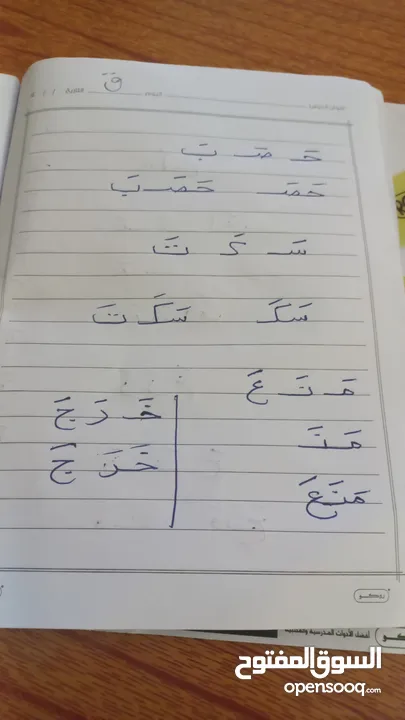 قَ
حَ صَ بَ
حَصَ حَصَبَ
سَ كَ تَ
سَكَ سَكَتَ
مَ نَ عَ
مَنَ
مَنَعَ
خَ رَ جَ
خَرَ جَ
روكو
السوق المفتوح
opensooq.com